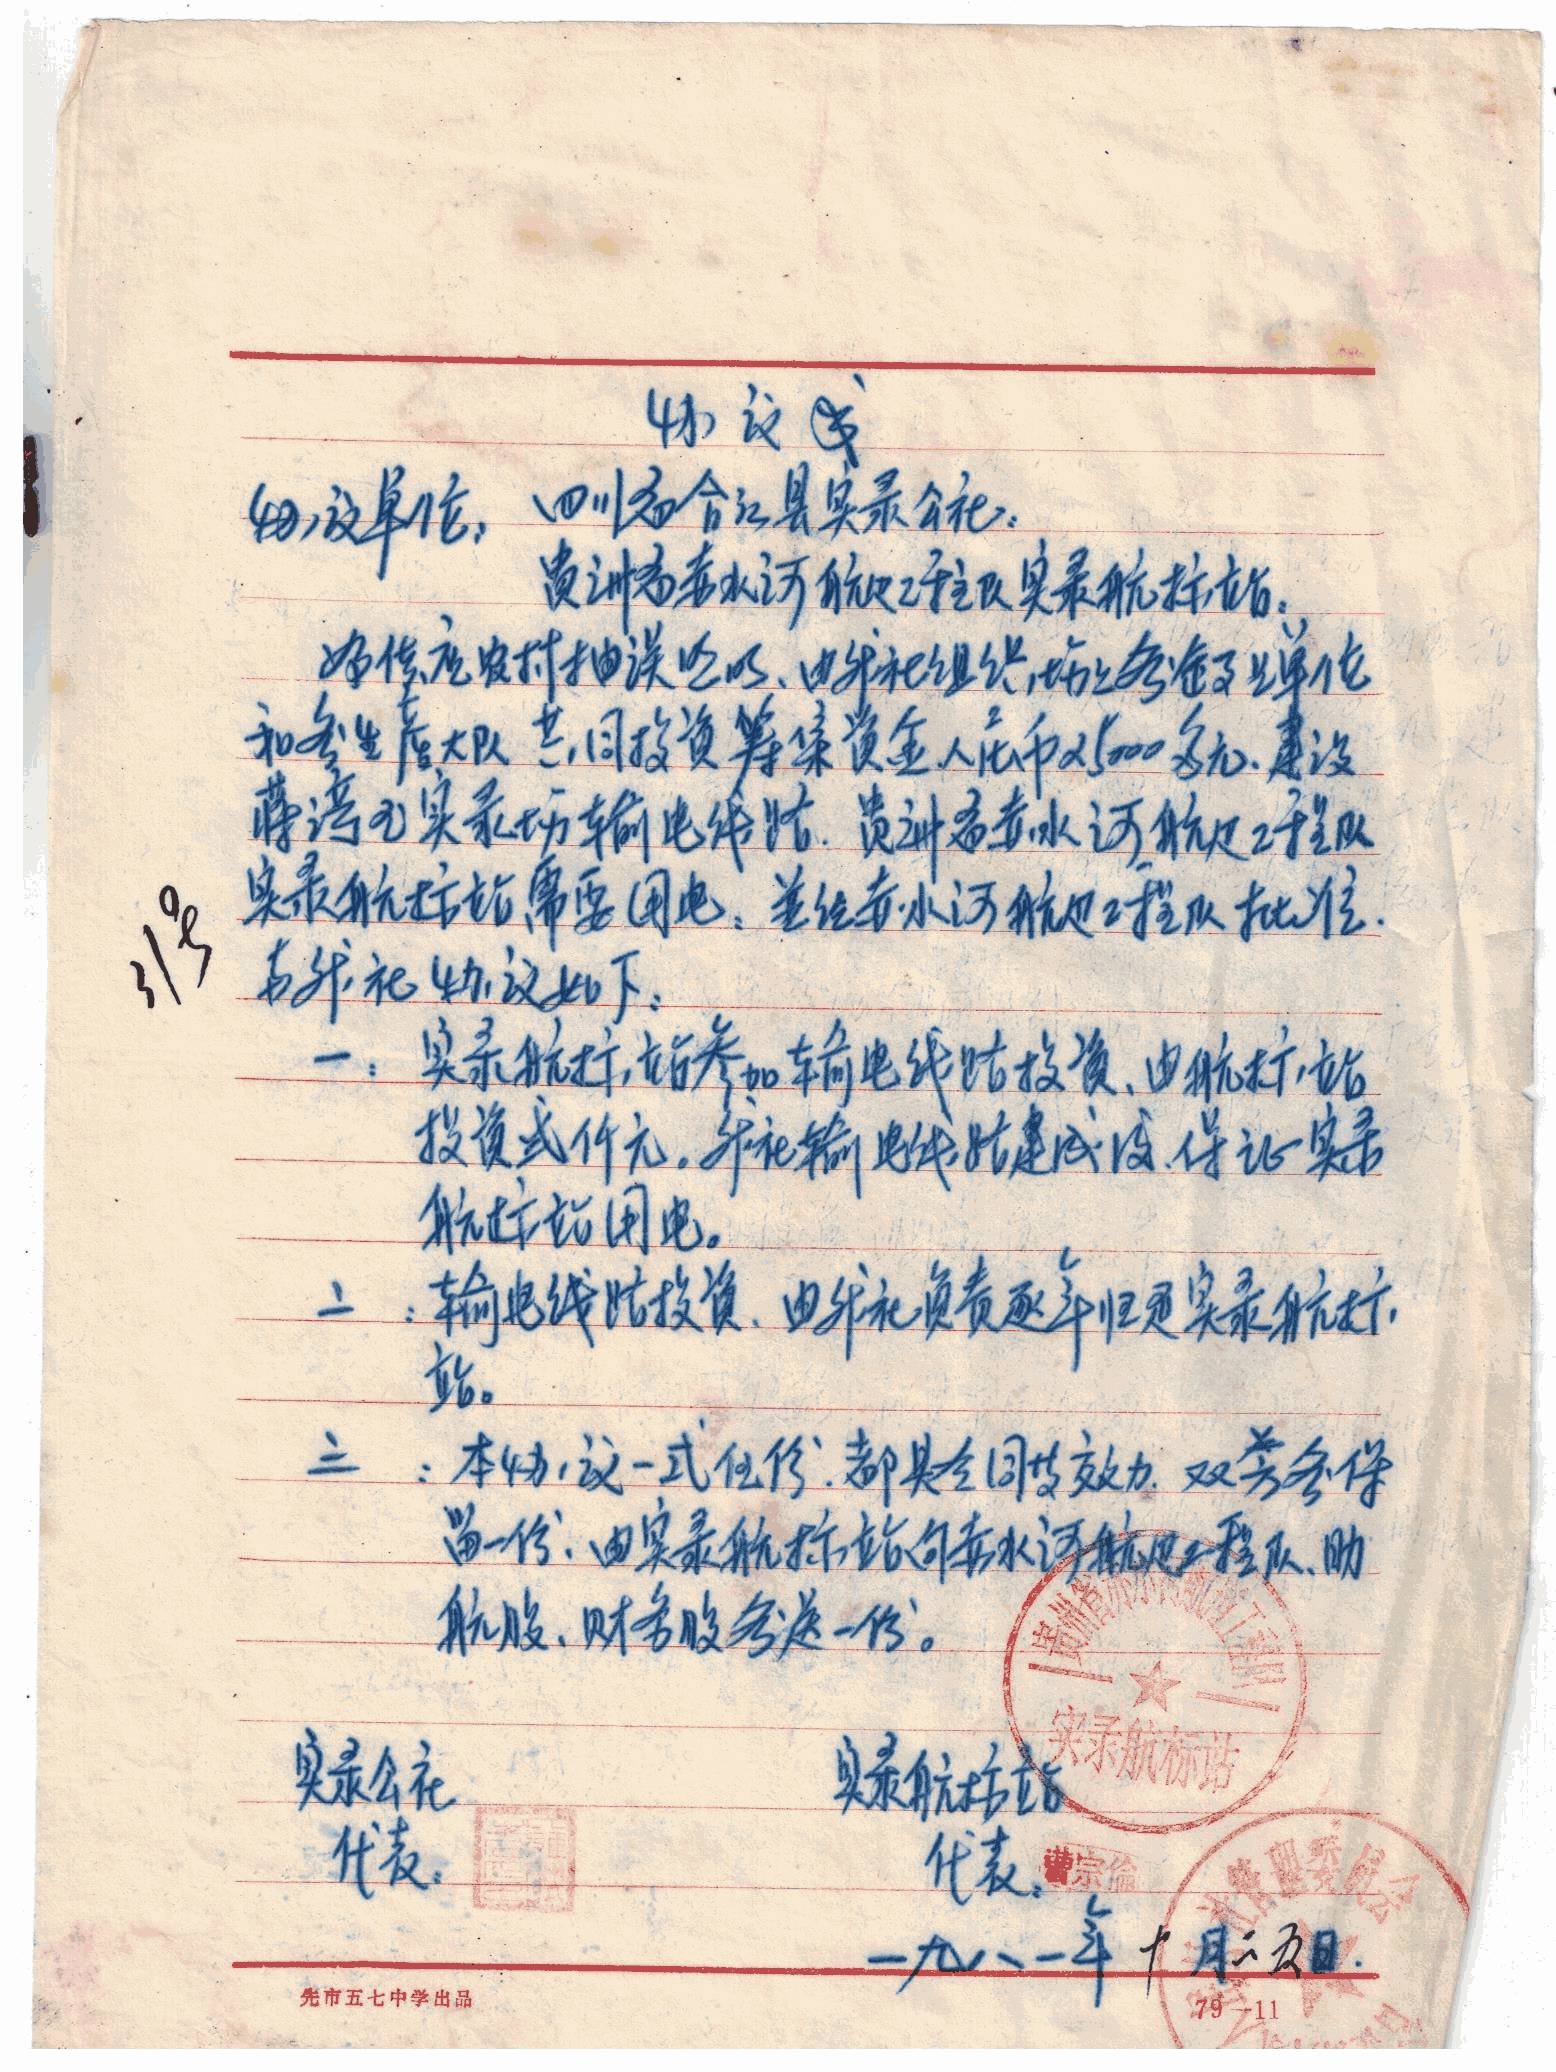 协议书
协议单位：四川省合江县实录公社：
贵州省赤水河航道工程队实录航标站：
为供应农村抽误照明、由我社组织，场上各企事业单位
和各生产大队共同投资筹集资金人民币25000多元、建设
蒋湾至实录场输电线路．贵州省赤水河航道工程队
实录航标站需要用电：并经赤水河航道工程队批准．
与我社协议如下：
一：实录航标站参加输电线路投资、由航标站
投资弍仟元。我社输电线路建成后、保证实录
航标站用电。
二：输电线路投资．由我社负责逐年归还实录航标
站。
三：本协议一式伍份．都具令同等效力．双方各保
留一份、由实录航标站向赤水河航道工程队、助
航股、财务股各送一份。
贵州省赤水河航道工程队
实录航标站
实录公社
实录航标站
代表：
代表：曹宗伦
管理委员会
一九八一年十月二五日．
先市五七中学出品
79—11